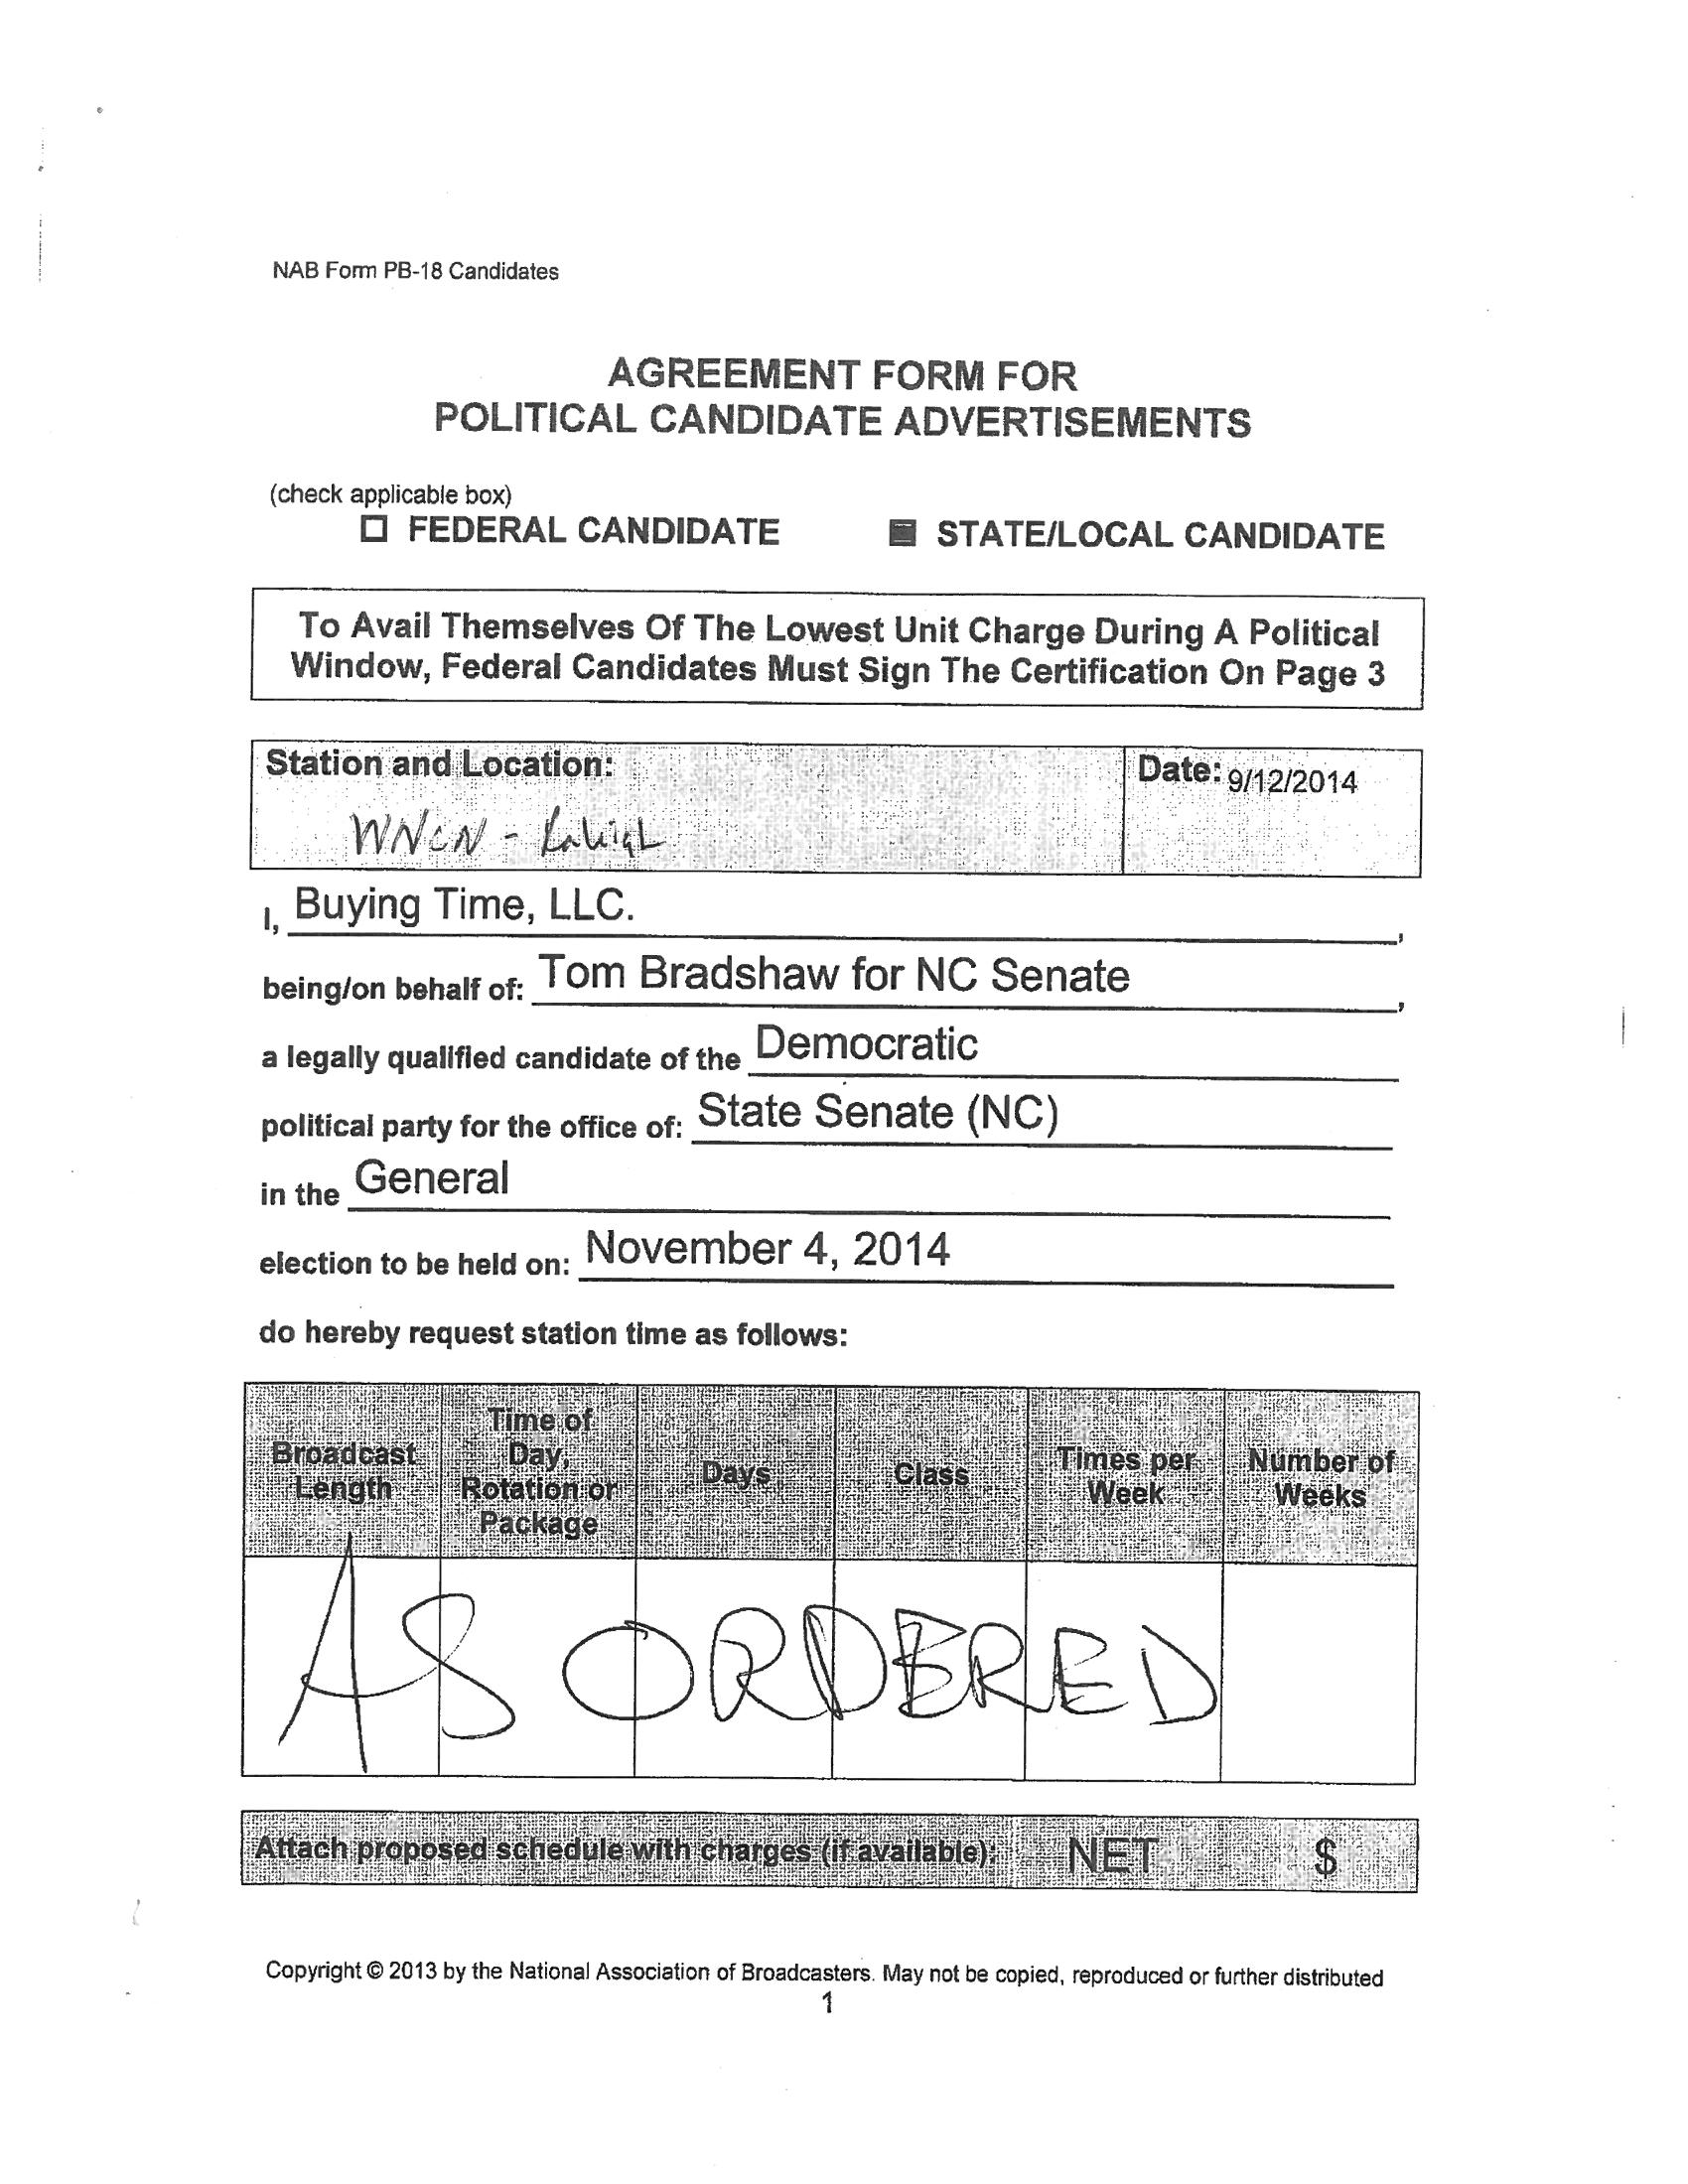 NAB Form PB-18 Candidates
AGREEMENT FORM FOR
POLITICAL CANDIDATE ADVERTISEMENTS
(check applicable box)
☐ FEDERAL CANDIDATE ■ STATE/LOCAL CANDIDATE
To Avail Themselves Of The Lowest Unit Charge During A Political
Window, Federal Candidates Must Sign The Certification On Page 3
Station and Location: Date: 9/12/2014
WNCN - Raleigh
I, Buying Time, LLC. ,
being/on behalf of: Tom Bradshaw for NC Senate ,
a legally qualified candidate of the Democratic
political party for the office of: State Senate (NC)
in the General
election to be held on: November 4, 2014
do hereby request station time as follows:
Broadcast Length Time of Day, Rotation or Package Days Class Times per Week Number of Weeks
AS ORDERED
Attach proposed schedule with charges (if available): NET $
Copyright © 2013 by the National Association of Broadcasters. May not be copied, reproduced or further distributed
1